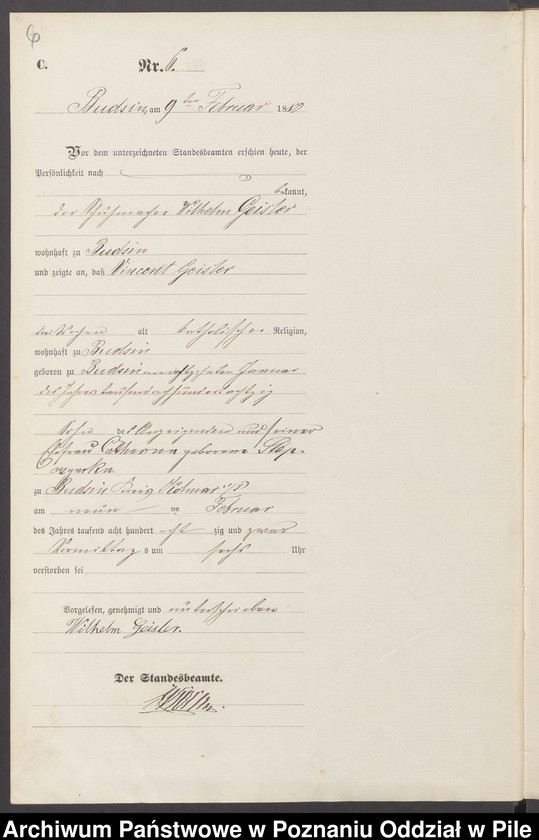 6
C.
Nr. 6.
Budsin, am 9ten Februar 1880
Vor dem unterzeichneten Standesbeamten erschien heute, der
Persönlichkeit nach
bekannt,
der Schuhmacher Wilhelm Geisler
wohnhaft zu Budsin
und zeigte an, daß Vincent Geisler
drei Wochen alt katholischer Religion,
wohnhaft zu Budsin
geboren zu Budsin am achtzehnten Januar
des Jahres tausend achthundert achtzig
Sohn des Anzeigenden und seiner
Ehefrau Catharina geborene
zu Budsin Kreis Kolmar i/P
am neun ten Februar
des Jahres tausend acht hundert acht zig und zwar
Vormittags um sechs Uhr
verstorben sei
Vorgelesen, genehmigt und unterschrieben
Wilhelm Geisler.
Der Standesbeamte.
Archiwum Państwowe w Poznaniu Oddział w Pile